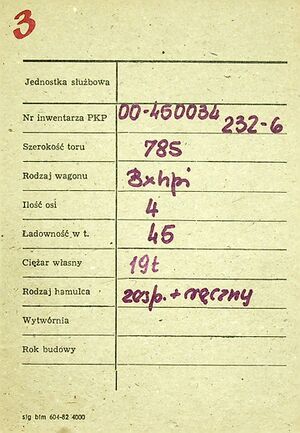 3
Jednostka służbowa
Nr inwentarza PKP 00-450034 232-6
Szerokość toru 785
Rodzaj wagonu Bxhpi
Ilość osi 4
Ładowność w t. 45
Ciężar własny 19t
Rodzaj hamulca zesp. + ręczny
Wytwórnia
Rok budowy
slg btm 604-82 4000